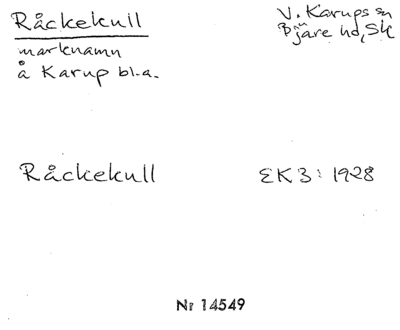 Råckekull
V. Karups sn
marknamn
Bjäre hd, Sk
å Karup bl.a.
Råckekull
EK3: 1928
Nr 14549